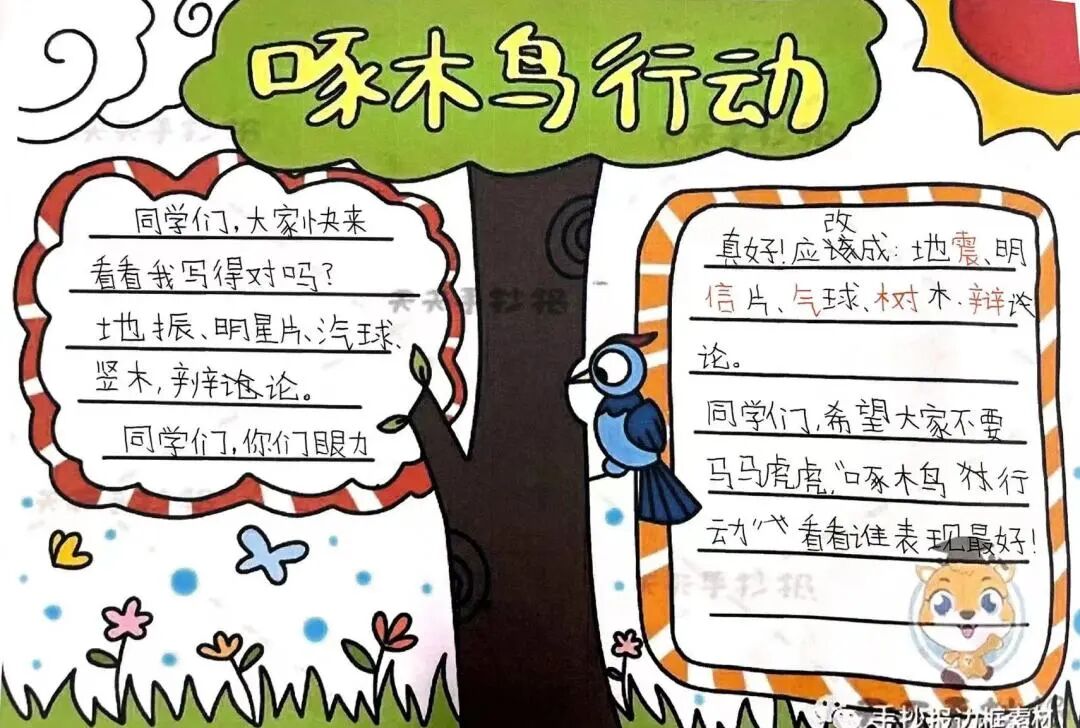 啄木鸟行动
同学们,大家快来
看看我写得对吗?
地振、明星片、汽球、
竖木,辨论。
同学们,你们眼力
真好!应改成:地震、明
信片、气球、树木、辩论
论。
同学们,希望大家不要
马马虎虎,“啄木鸟”行
动”看看谁表现最好!
天天手抄报
天天手抄报
天天手抄报
手抄报边框素材